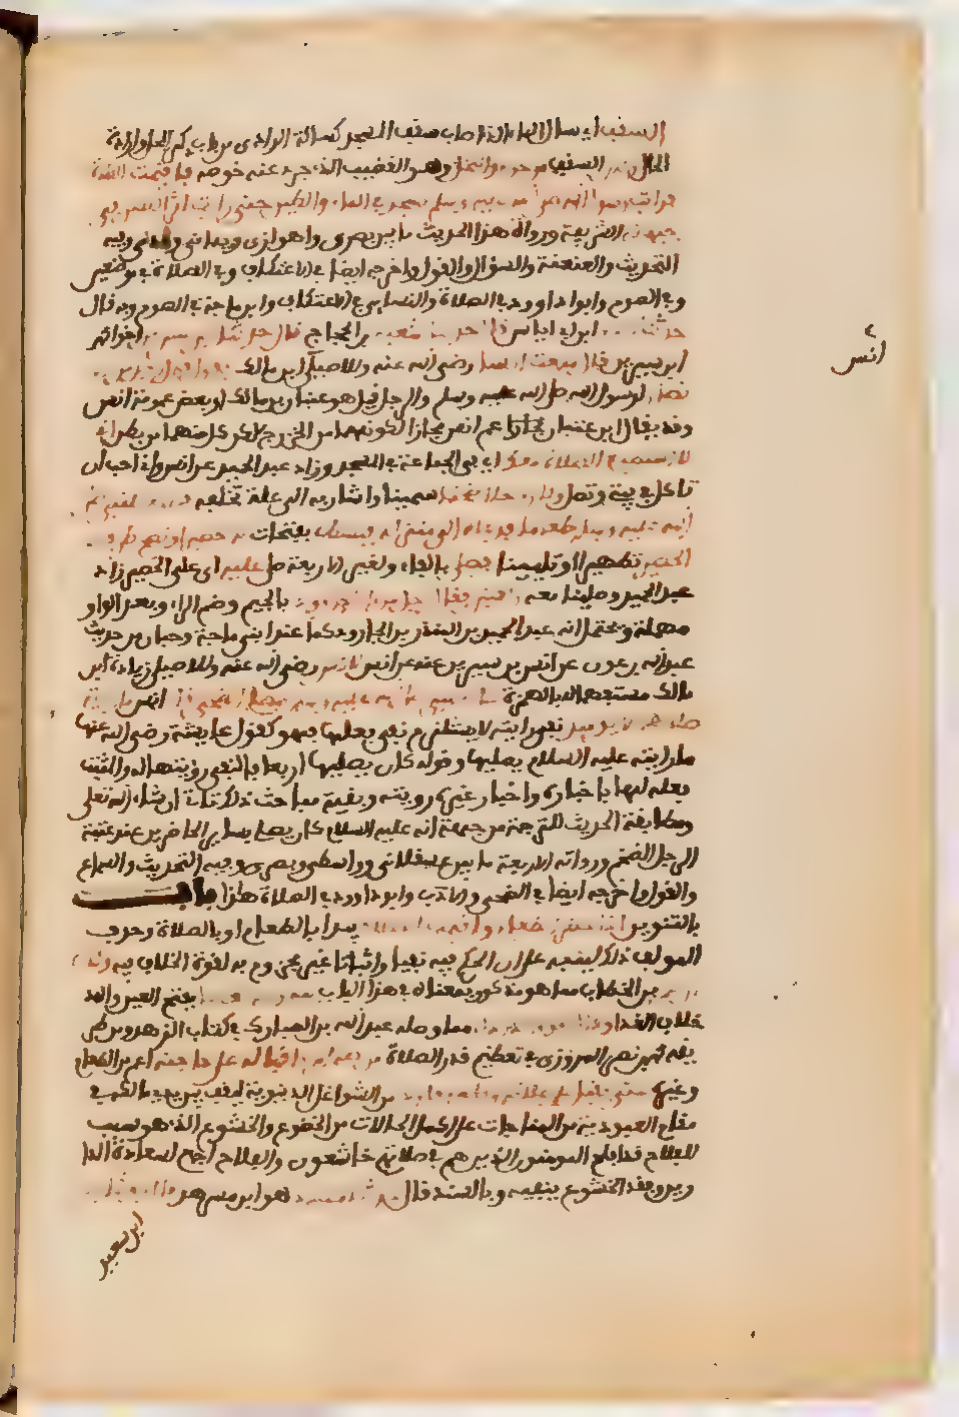 السقف اي سال الماء الذي اصاب سقف المسجد كسالة الوادي من باب ذكر المحل وارادة
الحال وكان السقف من جريد النخل وهو القضيب الذي يجرد عنه خوصه فاقيمت الصلاة
فرايت رسول الله صلى الله عليه وسلم يسجد في الماء والطين حتى رايت اثر الطين في
جبهته الشريفة ورواة هذا الحديث ما بين بصري واهوازي ويماني ومدني وفيه
التحديث والعنعنة والسؤال والقول واخرجه ايضا في الاعتكاف وفي الصلاة في موضعين
وفي الصوم وابو داود في الصلاة والنساءي في الاعتكاف وابن ماجة في الصوم وبه قال
حدثنا ابن ابي اياس قال حدثنا شعبة بن الحجاج قال حدثنا انس اخو انس
ابن سيرين قال سمعت انسا رضي الله عنه وللاصيلي ابن مالك يقول قال رجل من
الانصار لرسول الله صلى الله عليه وسلم والرجل قيل هو عتبان بن مالك او بعض عمومة انس
وقد يقال ان عتبان عم انس مجازا لكونهما من الخزرج لكن كل منهما من بطن اني
لا استطيع الصلاة معك اي في الجماعة في المسجد وزاد عبد الحميد عن انس واني احب ان
تاكل في بيتي وتصلي وكان رجلا ضخما سمينا واشار به الى علة تخلفه فصنع للنبي صلى
الله عليه وسلم طعاما فدعاه الى منزله فبسط بفتحات له حصيرا ونضح طرف
الحصير تطهيرا او تليينا فصلى بالفاء ولغير الاربعة صلى عليه اي على الحصير زاد
عبد الحميد وصلينا معه ركعتين فقال رجل من ال الجارود بالجيم وضم الراء وبعد الواو
مهملة ويحتمل انه عبد الحميد بن المنذر بن الجارود كما عند ابني ماجة وحبان من حديث
عبد الله بن عون عن انس بن سيرين عنه عن انس لانس رضي الله عنه وللاصيلي زيادة ابن
مالك مستفهما له بالهمزة اكان النبي صلى الله عليه وسلم يصلي الضحى قال انس ما رايته
صلاها الا يومئذ نفي رايته لا يستلزم نفي فعلها فهو كقول عايشة رضي الله عنها
ما رايته عليه السلام يصليها وقوله كان يصليها اربعا فالنفي رؤيتها له والمثبت
فعله لها باخباره واخبار غيره فروته وبقية مباحث ذلك تاتي ان شاء الله تعلى
ومطابقة الحديث للترجمة من جهة انه عليه السلام كان يصلي بساير الحاضرين عند غيبة
الرجل الضخم ورواته الاربعة ما بين عسقلاني وواسطي وبصري وفيه التحديث والسماع
والقول واخرجه ايضا في الضحى والادب وابو داود في الصلاة هذا باب
بالتنوين اذا حضر الطعام واقيمت الصلاة يبدا بالطعام او بالصلاة وحذف
المولف ذلك لينبه على ان الحكم فيه نفيا واثباتا غير مجزوم به لقوة الخلاف فيه وكان
ابن عمر بن الخطاب مما هو مذكور بمعناه في هذا الباب يبدا بالعشاء بفتح العين والمد
خلاف الغداء وقال ابو الدرداء مما وصله عبد الله بن المبارك في كتاب الزهد ومن طر
يقه محمد نصر المروزي في تعظيم قدر الصلاة من فقه المرء اقباله على حاجته اعم من الطعام
وغيره حتى يقبل على صلاته وقلبه فارغ من الشواغل الدنيوية ليقف بين يدي مالكه في
مقام العبودية من المناجات على اكمل الحالات من الخضوع والخشوع الذي هو سبب
للفلاح قد افلح المومنون الذين هم في صلاتهم خاشعون والفلاح اجمع لسعادة الدا
رين وفقد الخشوع ينفيه وبالسند قال حدثنا مسدد هو ابن مسرهد قال حدثنا يحي
ابن سعيد
انس